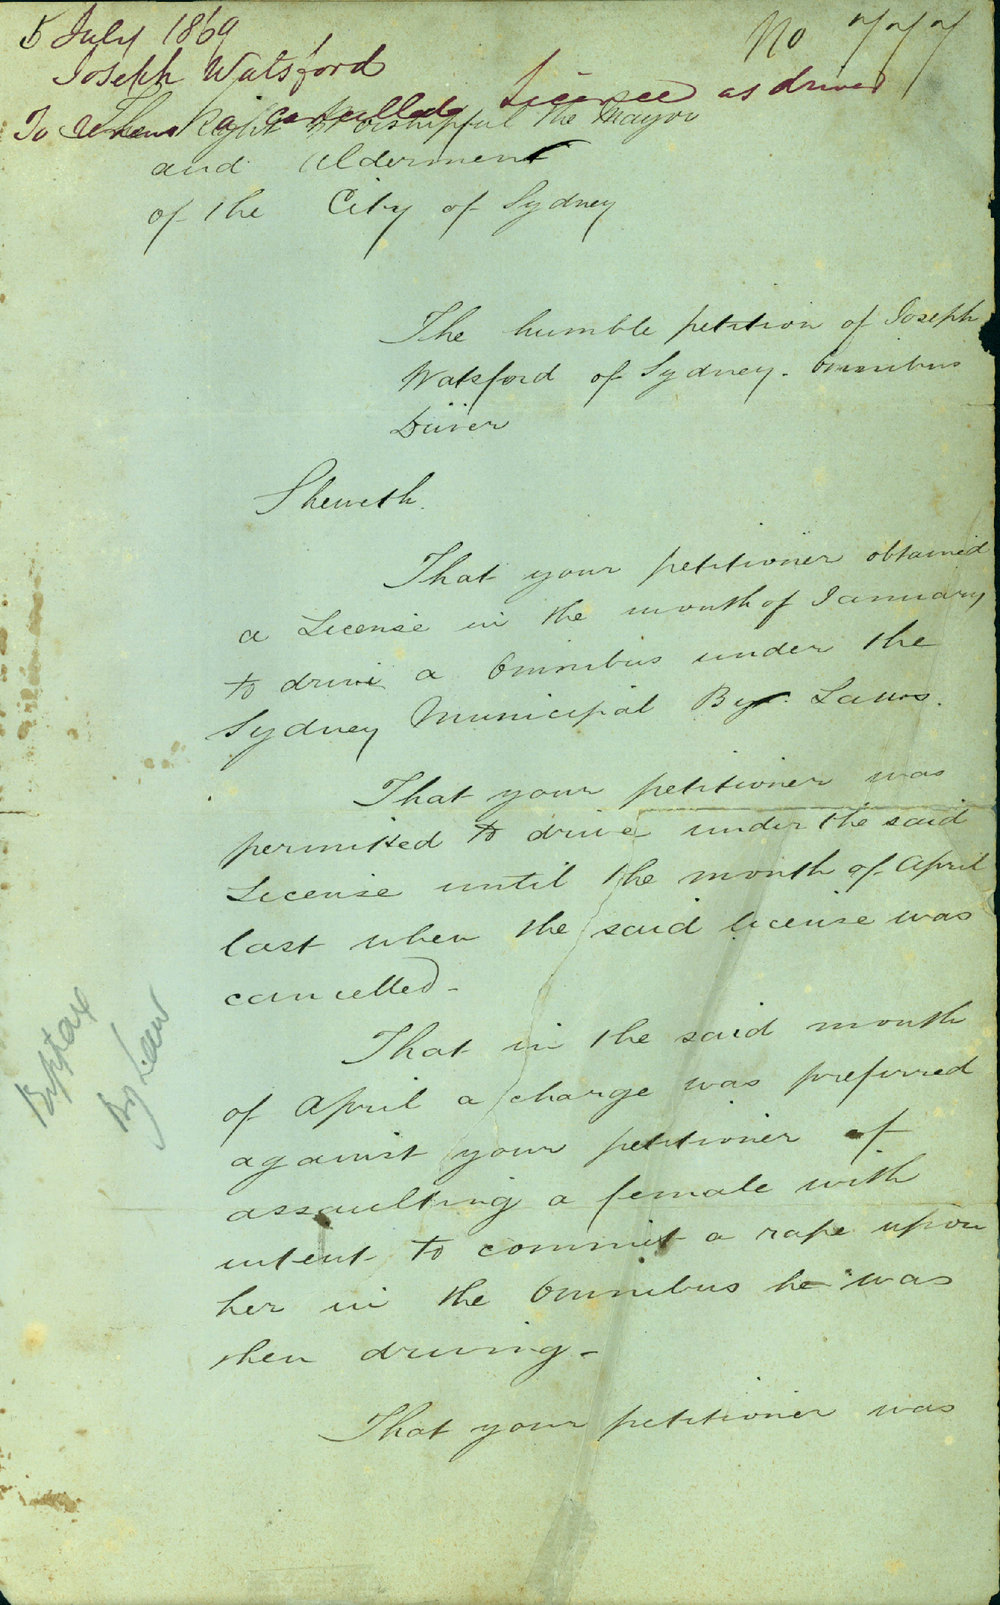 5 July 1869
No 777
Joseph Watsford
To renew a cancelled Licence as driver
The Right Worshipful the Mayor
and Aldermen
of the City of Sydney
The humble petition of Joseph
Watsford of Sydney. Omnibus
Driver
Sheweth.
That your petitioner obtained
a License in the month of January
to drive a Omnibus under the
Sydney Municipal By. Laws.
That your petitioner was
permitted to drive under the said
License until the month of April
last when the said license was
cancelled-
That in the said month
of April a charge was preferred
against your petitioner of
assaulting a female with
intent to commit a rape upon
her in the Omnibus he was
then driving-
That your petitioner was
By Law